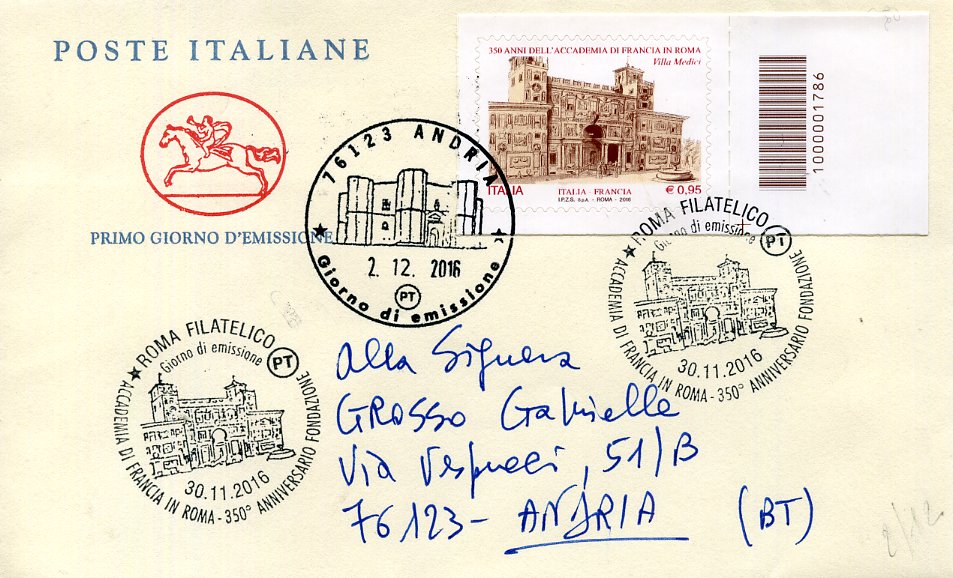 POSTE ITALIANE
PRIMO GIORNO D'EMISSIONE
350 ANNI DELL'ACCADEMIA DI FRANCIA IN ROMA
Villa Medici
ITALIA
ITALIA - FRANCIA
I.P.Z.S. S.p.A. - ROMA - 2016
€ 0,95
1000001786
76123 ANDRIA
2. 12. 2016
PT
Giorno di emissione
ROMA FILATELICO
Giorno di emissione
PT
30.11.2016
ACCADEMIA DI FRANCIA IN ROMA - 350° ANNIVERSARIO FONDAZIONE
ROMA FILATELICO
Giorno di emissione
PT
30.11.2016
ACCADEMIA DI FRANCIA IN ROMA - 350° ANNIVERSARIO FONDAZIONE
Alla Signora
GROSSO Gabriella
Via Vespucci, 51/B
76123 - ANDRIA (BT)
2/12